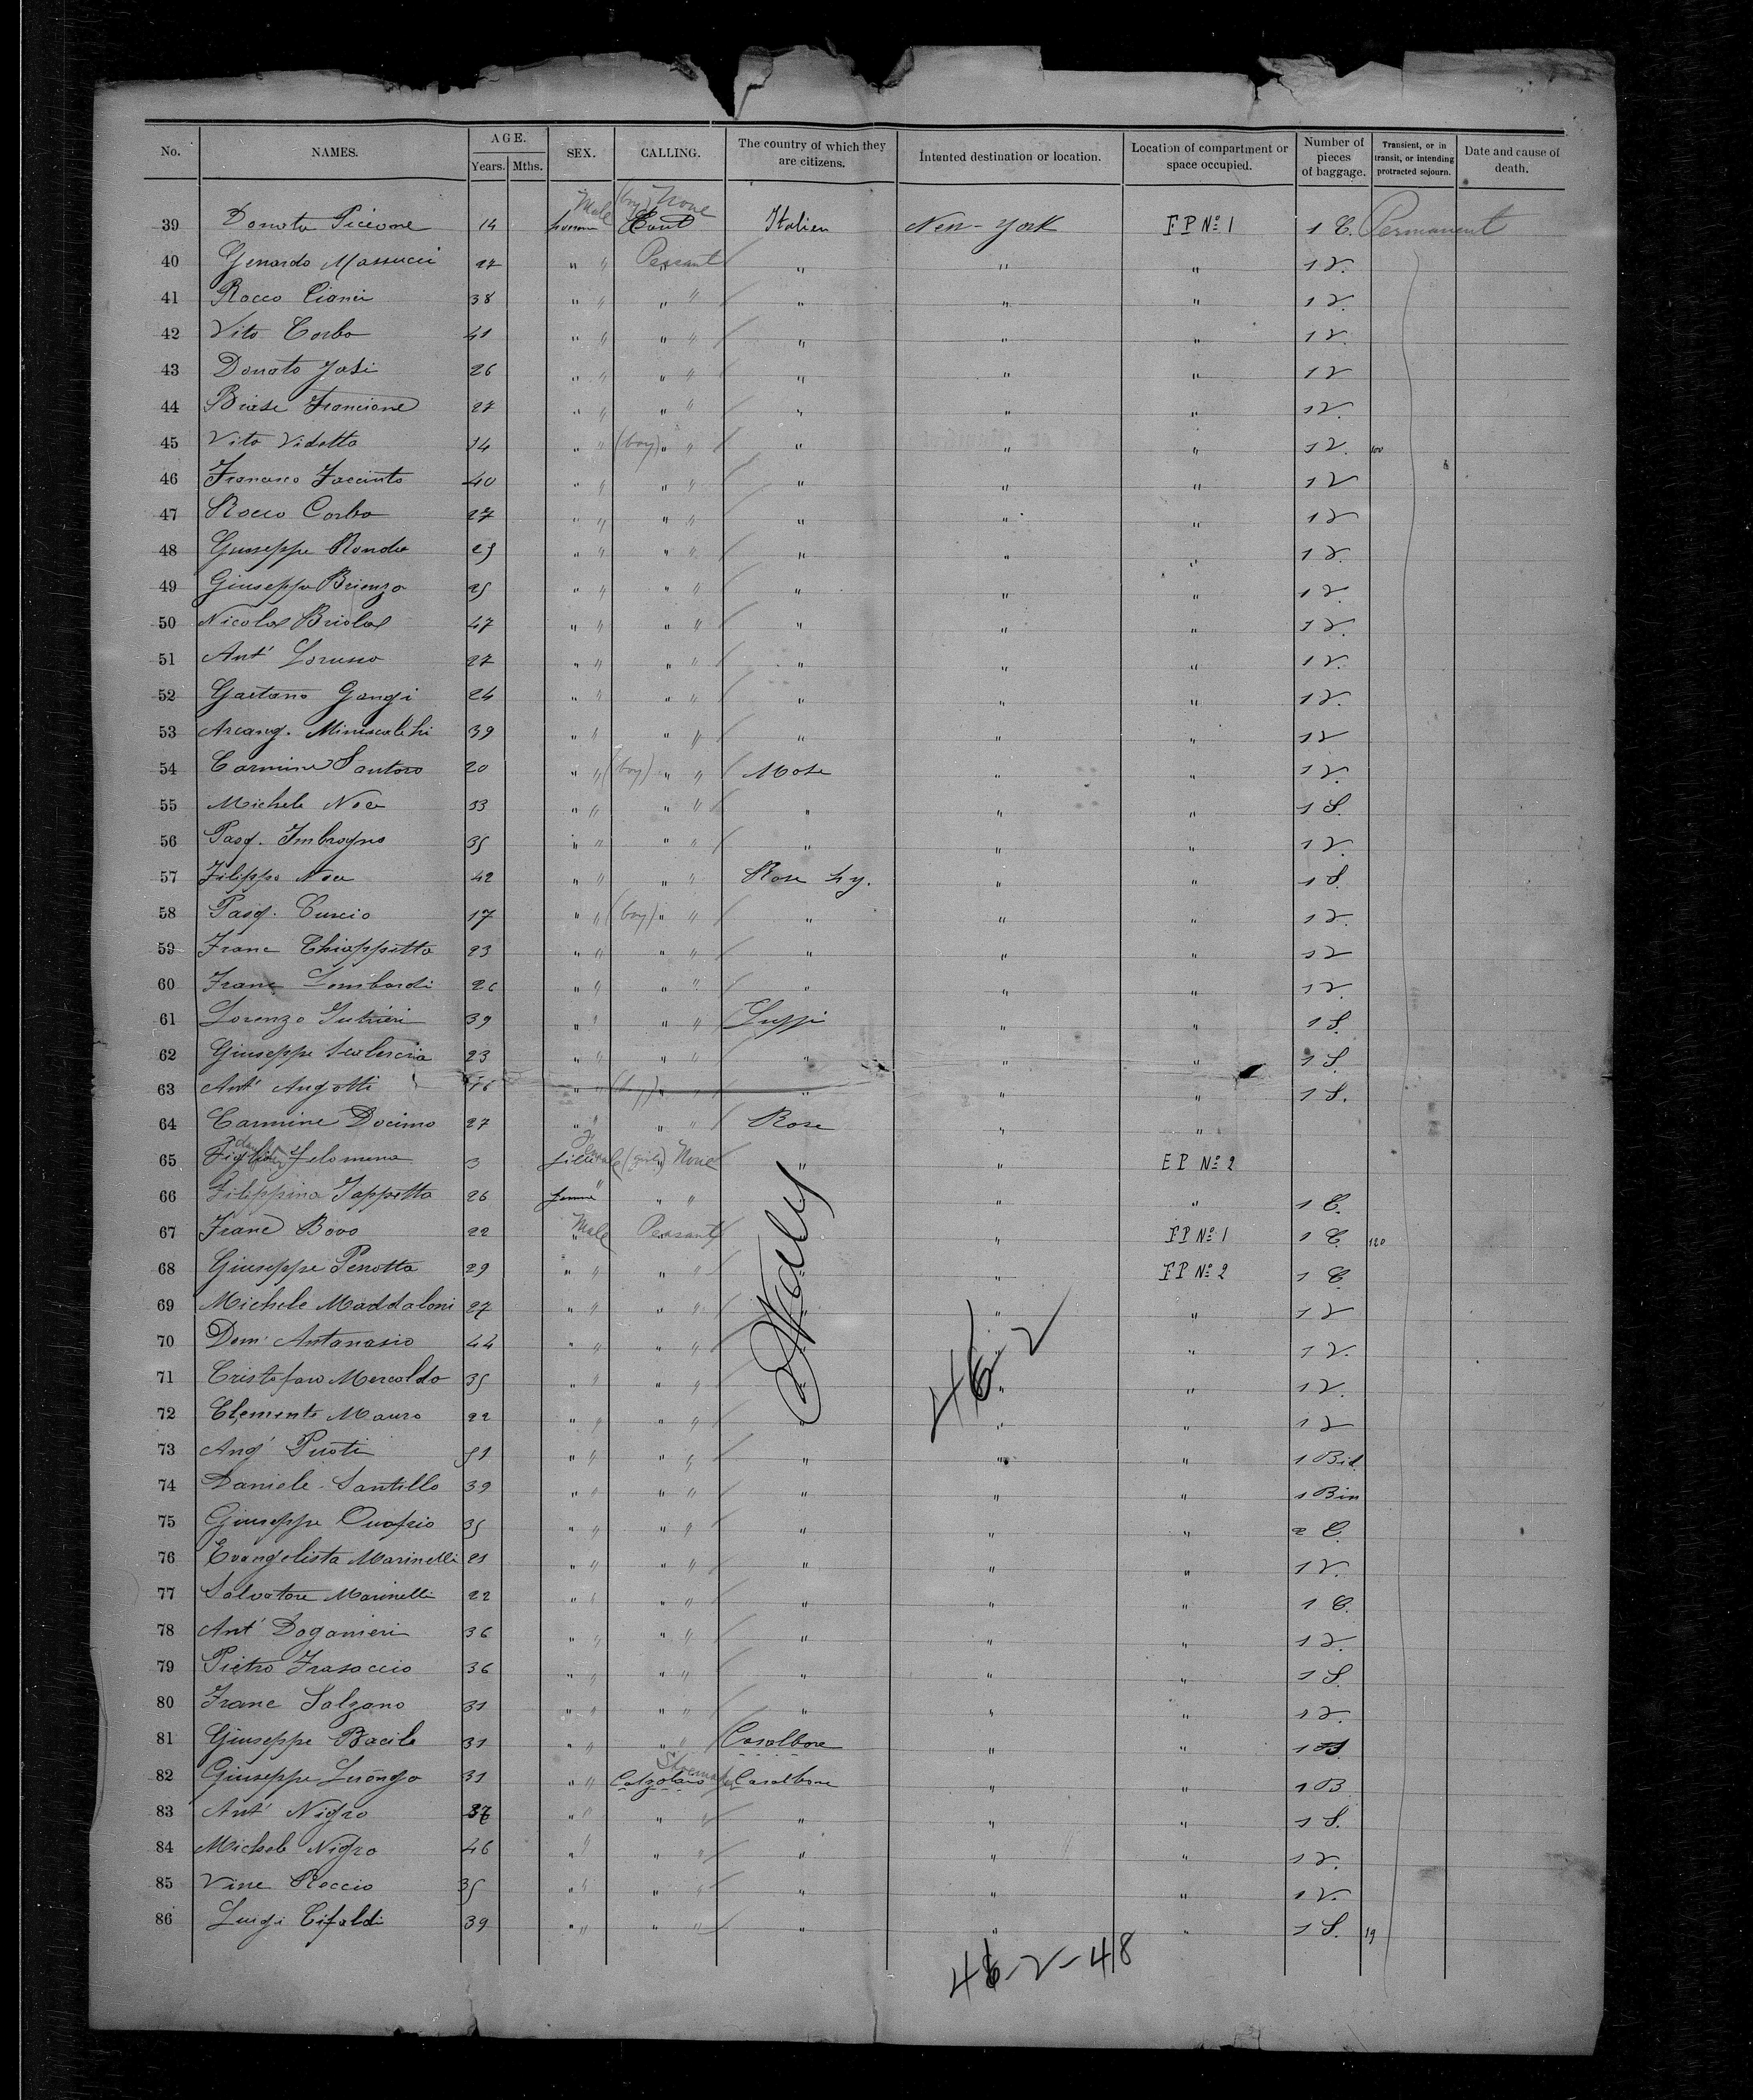 No. NAMES. AGE. Years. Mths. SEX. CALLING. The country of which they are citizens. Intented destination or location. Location of compartment or space occupied. Number of pieces of baggage. Transient, or in transit, or intending protracted sojourn. Date and cause of death.
Male (boy) None
39 Donato Picione 14 Italien New-York FP No 1 1 C. Permanent
40 Gerardo Massucci 27 " " Peasant " " " 1 V.
41 Rocco Cianci 38 " " " " " " " 1 V.
42 Vito Corbo 41 " " " " " " " 1 V.
43 Donato Jasi 26 " " " " " " " 1 V
44 Biase Francione 27 " " " " " " " 1 V.
45 Vito Videtta 14 " " (boy) " " " " " 1 V. 100
46 Francesco Jacciuto 40 " " " " " " " 1 V
47 Rocco Corbo 27 " " " " " " " 1 V
48 Giuseppe Ronda 25 " " " " " " " 1 V.
49 Giuseppe Brienza 25 " " " " " " " 1 V.
50 Nicola Briola 47 " " " " " " " 1 V.
51 Ant' Lorusso 27 " " " " " " " 1 V.
52 Gaetano Gangi 24 " " " " " " " 1 V.
53 Arcang. Miniscalchi 39 " " " " " " " 1 V
54 Carmine Santoro 20 " " (boy) " " Mose " " 1 V.
55 Michele Noce 33 " " " " " " " 1 S.
56 Pasq. Imbrogno 35 " " " " " " " 1 V.
57 Filippo Noce 42 " " " " Rose " " 1 S.
58 Pasq. Cuscio 17 " " (boy) " " " " " 1 V
59 Franc Chiappetta 23 " " " " " " " 1 V
60 Franc Lombardi 26 " " " " " " " 1 V.
61 Lorenzo Gutrieri 39 " " " " Luzzi " " 1 S.
62 Giuseppe Scalercia 23 " " " " " " " 1 S.
63 Ant' Angotti 16 " " (boy) " " " " " 1 S.
64 Carmine Docimo 27 " " " " Rose " "
65 Figlia Filomena 3 fille Female (girl) " None " " EP No 2
66 Filippina Jappetta 26 femme " " " " " 1 C.
67 Franc Bovo 22 Male Peasant " FP No 1 1 C. 120
68 Giuseppe Perrotta 29 " " " " " FP No 2 1 C
69 Michele Maddaloni 27 " " " " " " 1 V
70 Dom' Antanasio 44 " " " " " " 1 V.
71 Cristofaro Mercaldo 35 " " " " " " 1 V.
72 Clemente Mauro 22 " " " " " " " 1 V
Italy
462
73 Ang' Puoti 51 " " " " " " " 1 Bid
74 Daniele Santillo 39 " " " " " " " 1 Bin
75 Giuseppe Onofrio 35 " " " " " " " 2 C.
76 Evangelista Marinelli 21 " " " " " " " 1 V.
77 Salvatore Marinelli 22 " " " " " " " 1 C.
78 Ant' Doganieri 36 " " " " " " " 1 V.
79 Pietro Frasaccio 36 " " " " " " " 1 S.
80 Franc Salzano 31 " " " " " " " 1 V.
81 Giuseppe Bacile 31 " " " " Casalbore " " 1
82 Giuseppe Luongo 31 " " Calzolaio Shoemaker Casalbore " " 1 B
83 Ant' Nigro 37 " " " " " " " 1 S.
84 Michele Nigro 46 " " " " " " " 1 V.
85 Vinc Roccio 35 " " " " " " " 1 V.
86 Luigi Cifaldi 39 " " " " " " " 1 S. 19
46-2-48